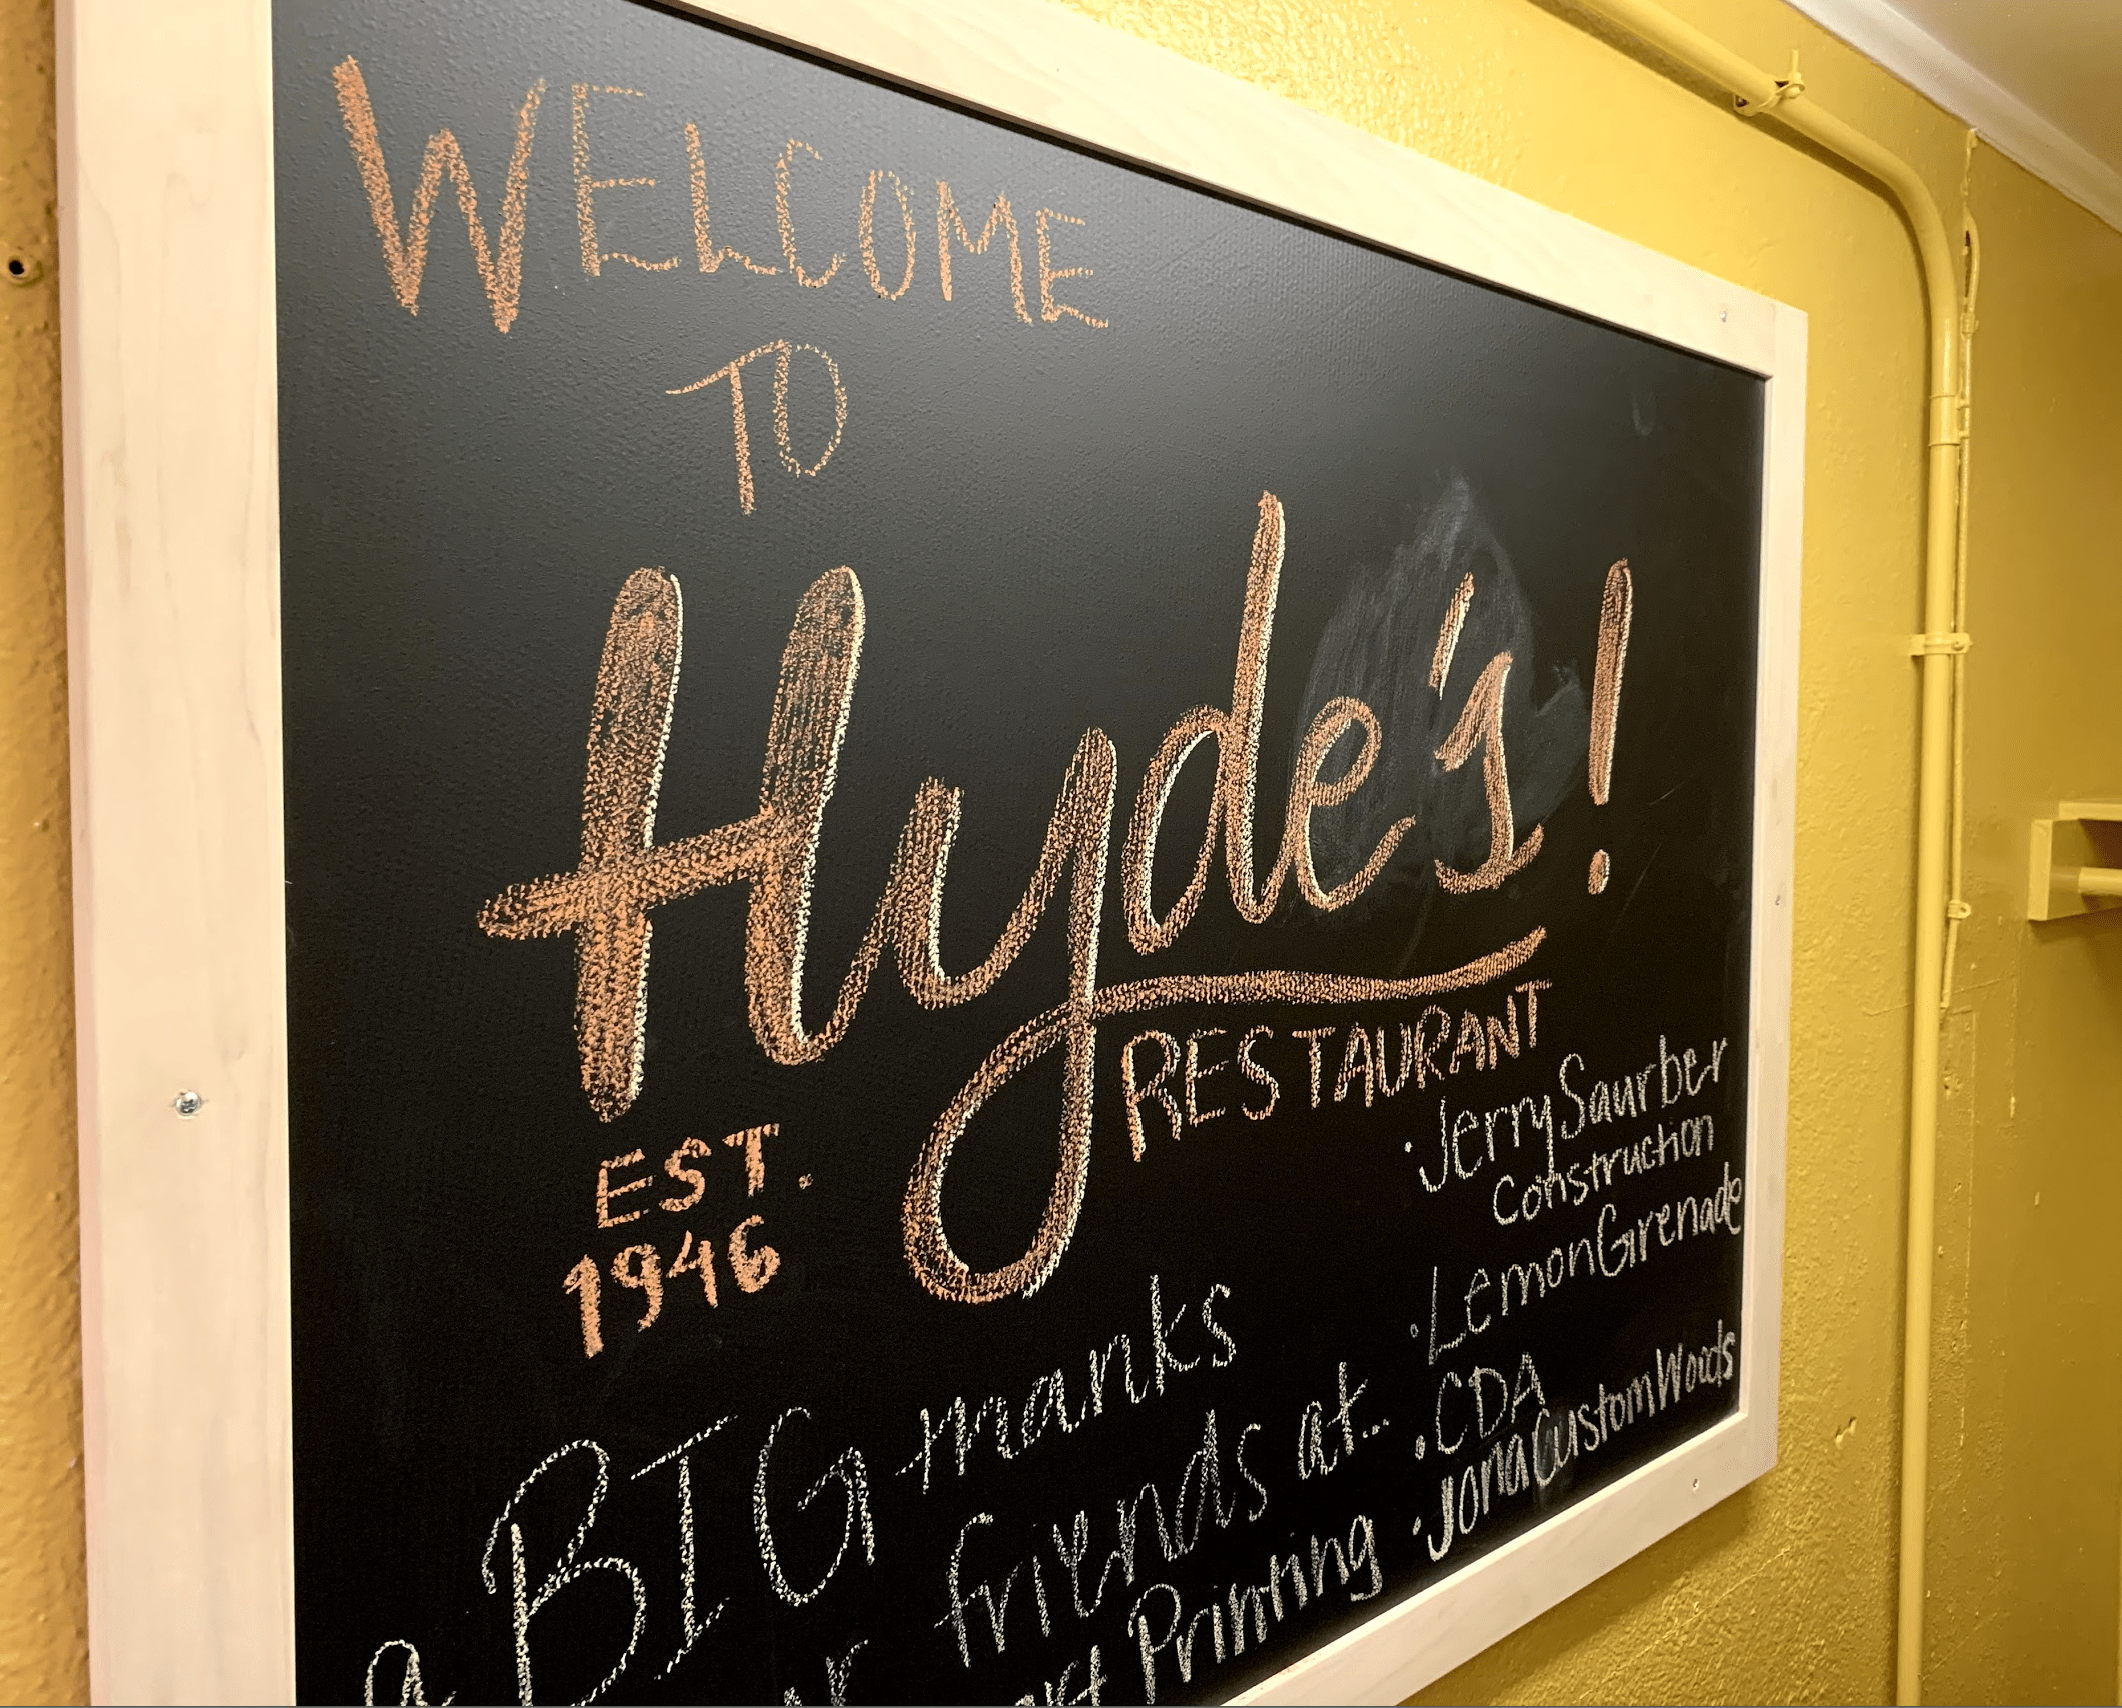 WELCOME
TO
Hyde's!
RESTAURANT
EST.
1946
a BIG thanks
friends at..
Printing
·Jerry Saurber
Construction
·Lemon Grenade
·CDA
·Jona Custom Woods